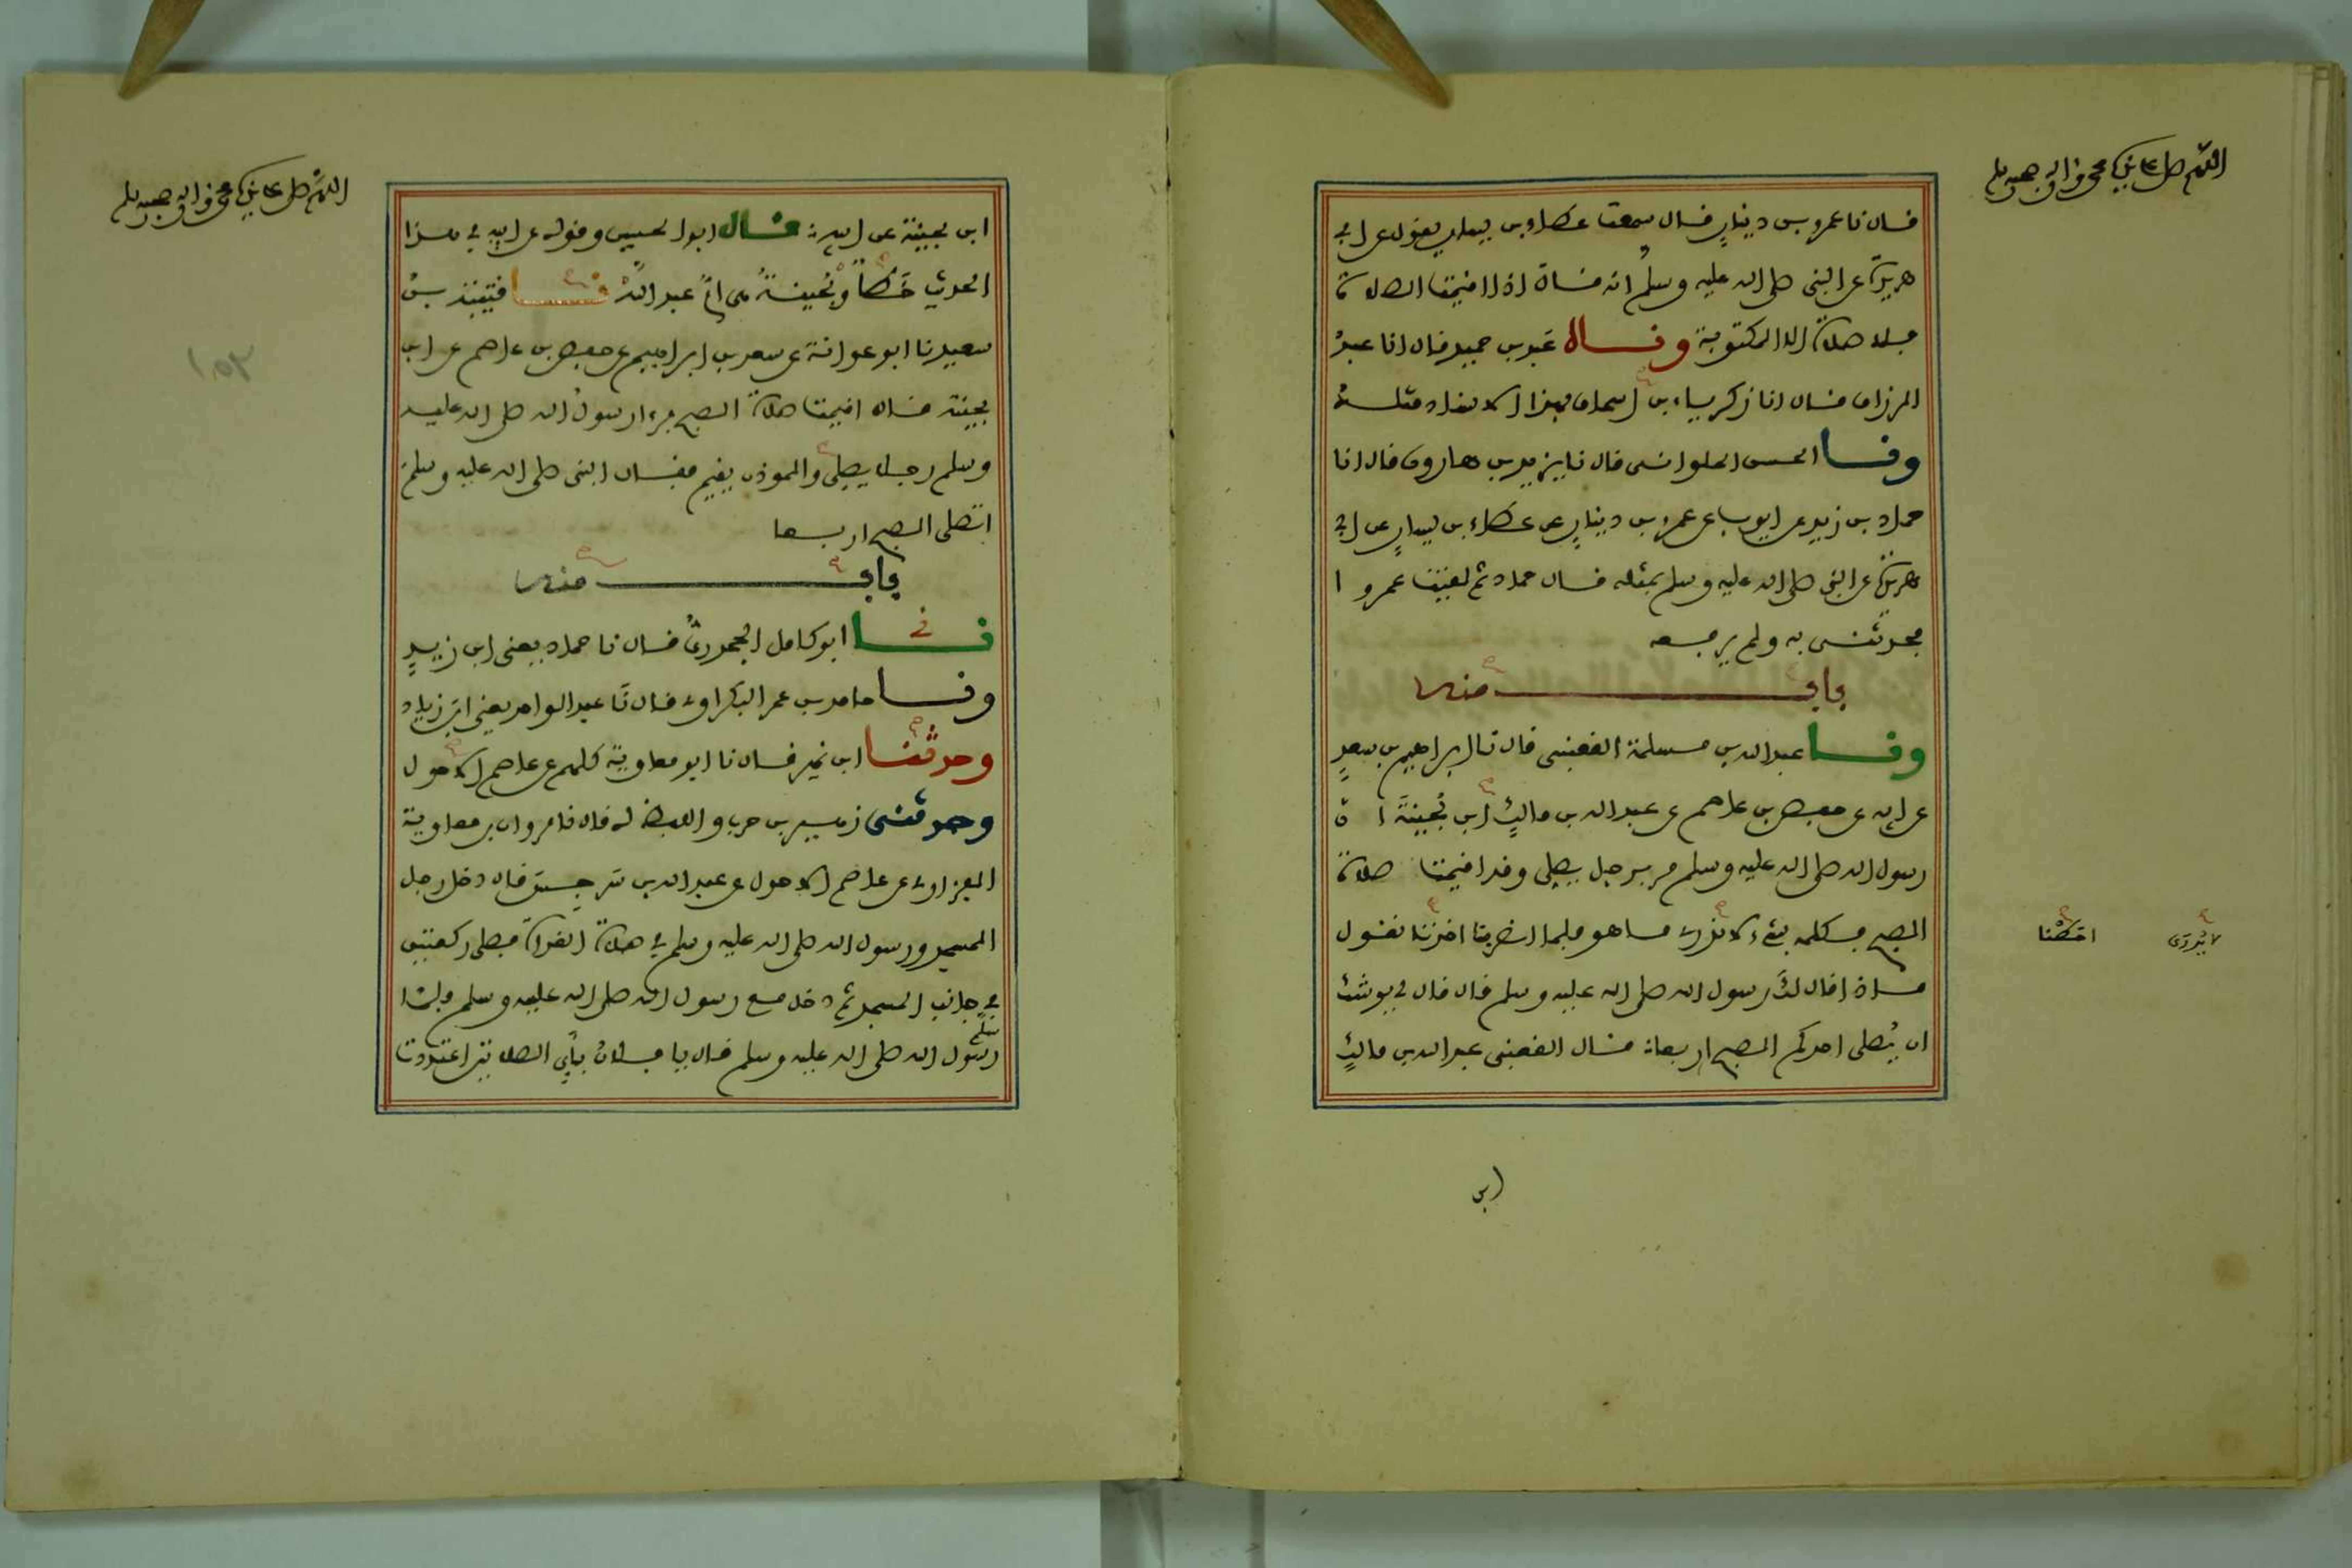 اللهم صل على نبيك محمد وآله وصحبه وسلم
قال نا عمرو بن دينار قال سمعت عطاء بن يسار يقول عن ابي
هريرة عن النبي صلى الله عليه وسلم انه قال اذا اقيمت الصلاة
فلا صلاة الا المكتوبة وقال عبد بن حميد قال انا عبد
الرزاق قال انا زكرياء بن اسحاق بهذا الاسناد مثله
ونا الحسن الحلواني قال نا يزيد بن هارون قال انا
حماد بن زيد عن ايوب عن عمرو بن دينار عن عطاء بن يسار عن ابي
هريرة عن النبي صلى الله عليه وسلم بمثله قال حماد ثم لقيت عمروا
فحدثني به ولم يرفعه
باب منه
ونا عبد الله بن مسلمة القعنبي قال نا ابراهيم بن سعد
عن ابيه عن حفص بن عاصم عن عبد الله بن مالك ابن بُحينةَ ان
رسول الله صلى الله عليه وسلم مر برجل يصلي وقد اقيمت صلاة
الصبح فكلمه بشيء لا ندري ما هو فلما انصرفنا احطنا نقول
ماذا قال لك رسول الله صلى الله عليه وسلم قال قال لي يوشك
ان يُصلي احدكم الصبح اربعا قال القعنبي عبد الله بن مالك
لا يُدرَى
احَطْنا
ابن
اللهم صل على نبيك محمد وآله وصحبه وسلم
ابن بحينة عن ابيه قال ابو الحسين وقوله عن ابيه في هذا
الحديث خَطأٌ وبُحينةُ هي امُّ عبد الله نا قتيبة بن
سعيد نا ابو عوانة عن سعد بن ابراهيم عن حفص بن عاصم عن ابن
بحينة قال اقيمت صلاة الصبح فرءا رسول الله صلى الله عليه
وسلم رجلا يصلي والموذن يقيم فقال النبي صلى الله عليه وسلم
اتصلي الصبح اربعا
باب منه
نا ابو كامل الجحدري قال نا حماد يعني ابن زيد
ونا حامد بن عمر البكراوي قال نا عبد الواحد يعني ابن زياد
وحدثنا ابن نمير قال نا ابو معاوية كلهم عن عاصم الاحول
وحدثني زهير بن حرب واللفظ له قال نا مروان بن معاوية
الفزاري عن عاصم الاحول عن عبد الله بن سرجس قال دخل رجل
المسجد ورسول الله صلى الله عليه وسلم في صلاة الغداة فصلى ركعتين
في جانب المسجد ثم دخل مع رسول الله صلى الله عليه وسلم فلما
سلّم
رسول الله صلى الله عليه وسلم قال يا فلان باي الصلاتين اعتددت
١٥٢